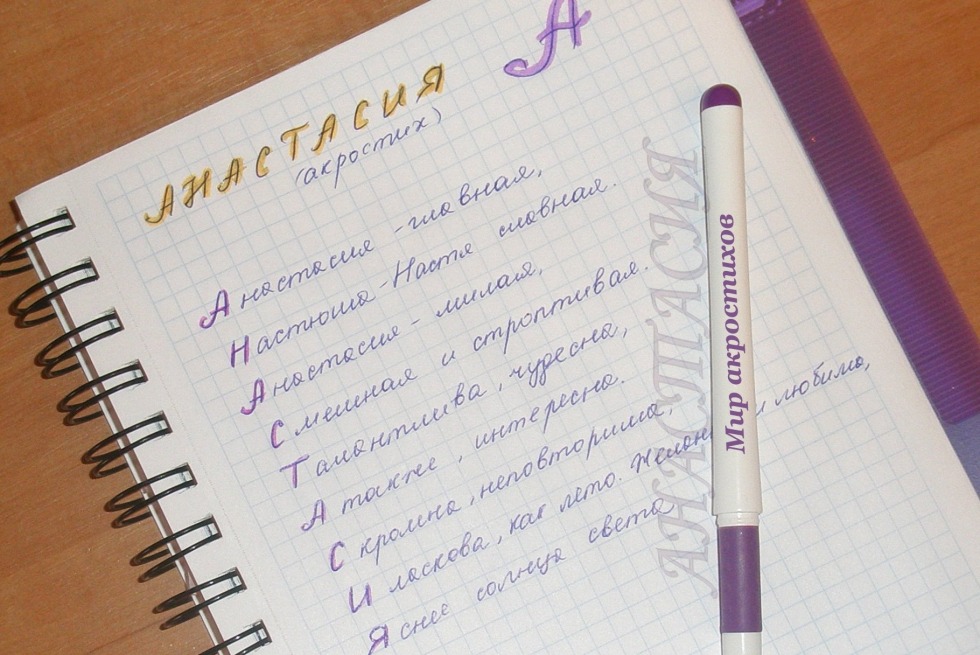 А
АНАСТАСИЯ
(акростих)
Анастасия - главная,
Настюша - Настя славная.
Анастасия - милая,
Смешная и строптивая.
Талантлива, чудесна,
А также, интересна.
Скромна, неповторима,
И ласкова, как лето. и любима,
Яснее солнца света
АНАСТАСИЯ
Мир акростихов